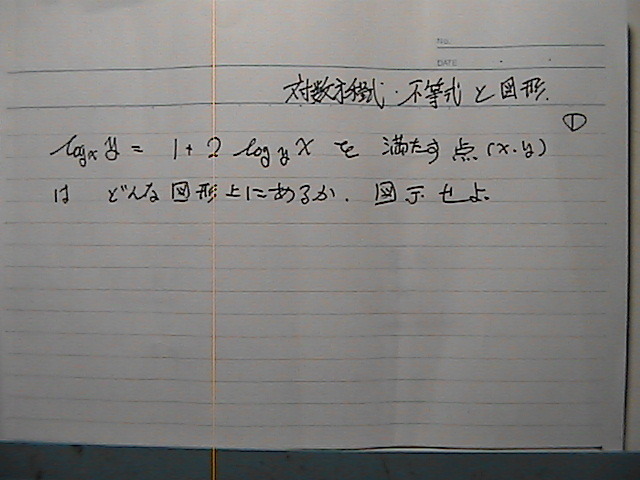 No.
DATE
対数方程式・不等式と図形.
①
log_x y = 1 + 2 log_y x を 満たす 点 (x.y)
は どんな図形上にあるか. 図示せよ.